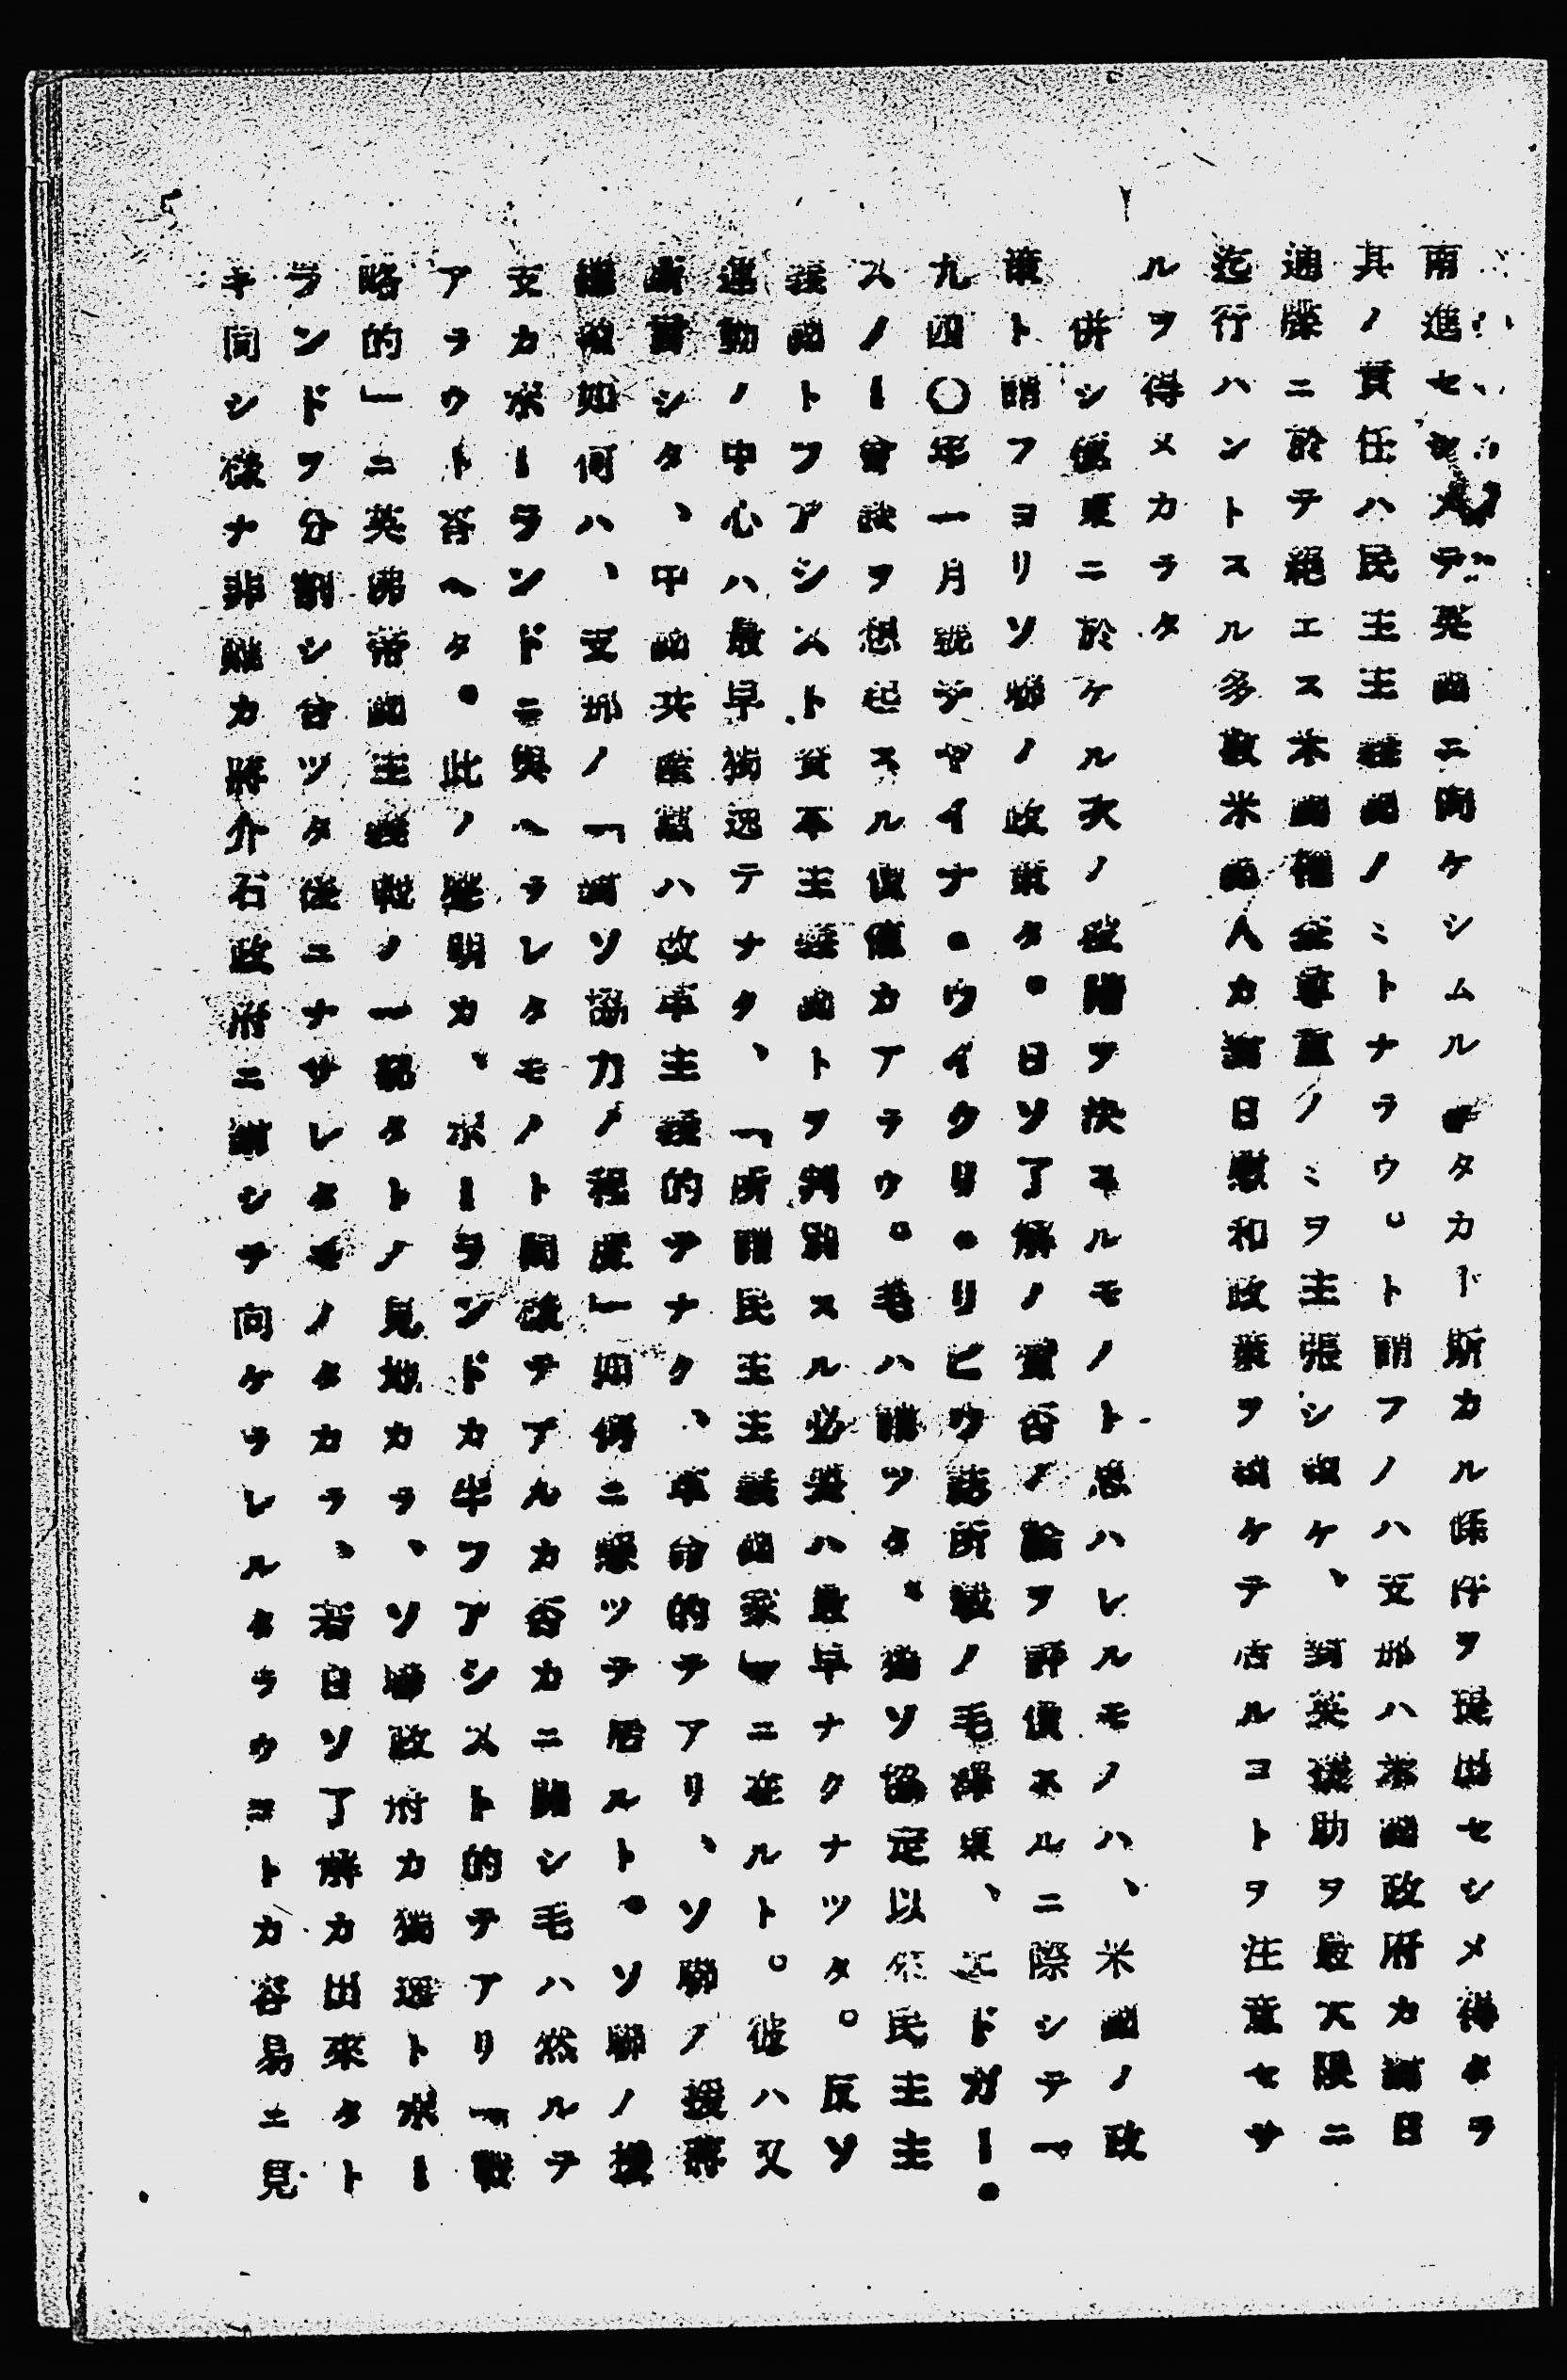 南進セセメテ英國ニ向ケシムルタカド斯カル條件ヲ提出セシメ得タラ
其ノ責任ハ民主主義國ノミトナラウ。ト謂フノハ支那ハ米國政府カ對日
通牒ニ於テ絕エス米國權益尊重ノミヲ主張シ續ケ、對英援助ヲ最大限ニ
迄行ハントスル多數米國人カ對日緩和政策ヲ續ケテ居ルコトヲ注意セサ
ルヲ得メカラタ
併シ極東ニ於ケル次ノ役階ヲ決スルモノト思ハレルモノハ、米國ノ政
策ト謂フヨリソ聯ノ政策タ。日ソ了解ノ實否ノ論ヲ評價スルニ際シテ一
九四〇年一月號デヤイナ・ウイクリ・リビウ誌所載ノ毛澤東、エドガー・
スノー會談ヲ想起スル價値カアラウ。毛ハ謂ツタ、獨ソ協定以來民主主
義國トフアシスト資本主義國トヲ判別スル必要ハ最早ナクナツタ。反ソ
運動ノ中心ハ最早獨逸テナク、「所謂民主主義國家」ニ在ルト。彼ハ又
斷言シタ、中國共產黨ハ改革主義的デナク、革命的テアリ、ソ聯ノ援蔣
繼續如何ハ、支那ノ「對ソ協力ノ程度」如何ニ懸ツテ居ルト。ソ聯ノ援
支カポーランドニ與ヘラレタモノト同樣デアルカ否カニ關シ毛ハ然ルテ
アラウト答ヘタ。此ノ聲明カ、ポーランドカ半フアシスト的デアリ「戰
略的」ニ英佛帝國主義戰ノ一部タトノ見地カラ、ソ聯政府カ獨逸トポー
ランドヲ分割シ合ツタ後ニナサレタモノタカラ、若日ソ了解カ出來タト
キ同シ樣ナ非難カ蔣介石政府ニ對シテ向ケラレルタラウコトカ容易ニ見